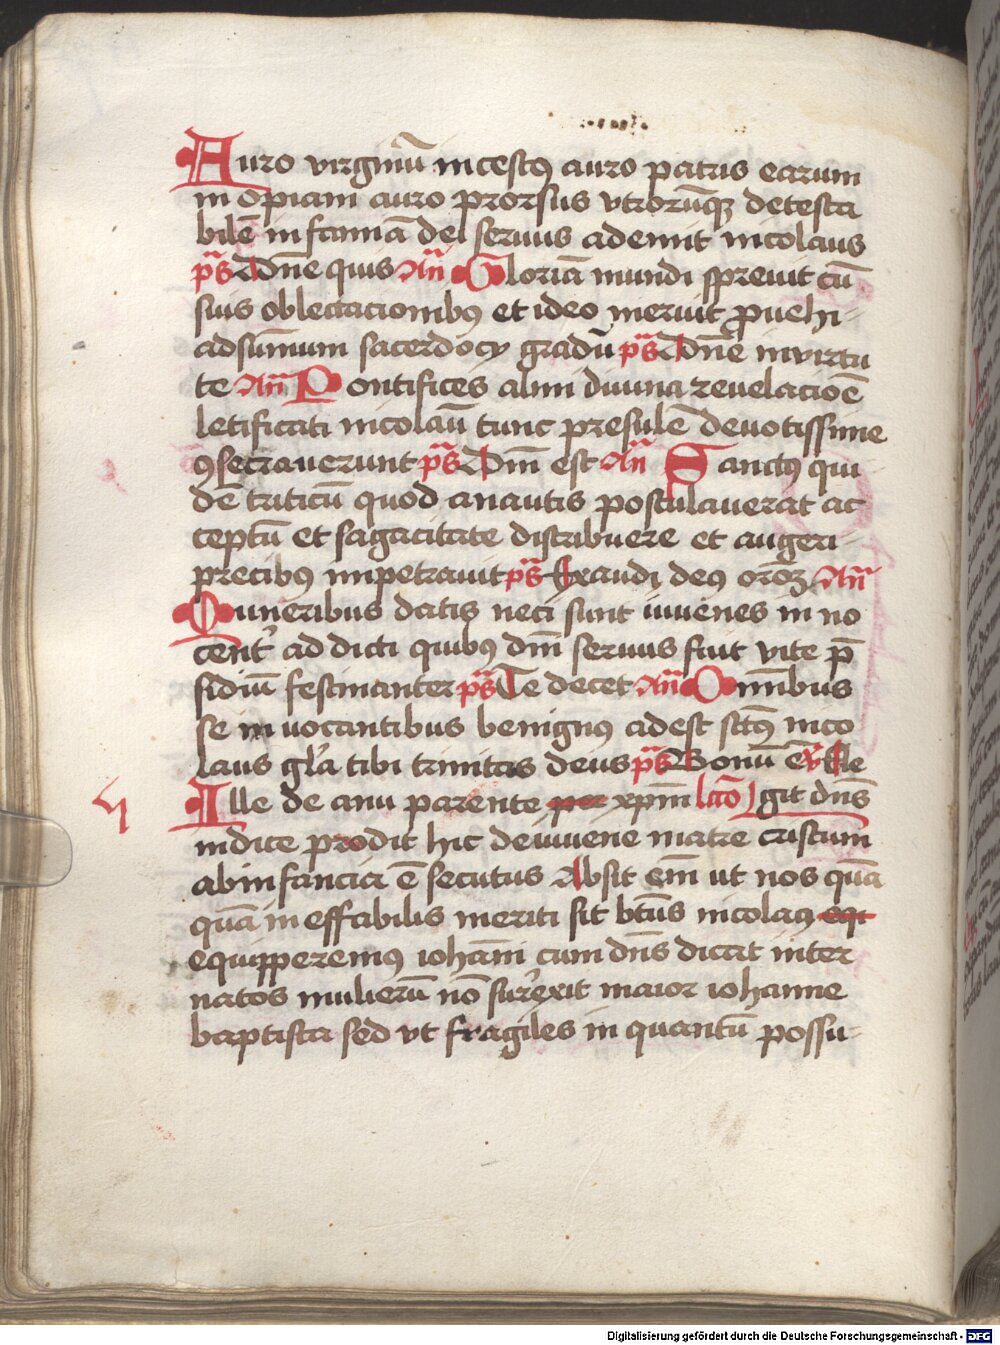 Auro virginū incestꝯ auro patris earum
in opiam auro prorsus vtrorūqꝫ detesta
bilē infamiā dei seruus ademit nicolaus
p̄s Dn̄e quis An̄ Gloriā mundi spreuit cū
suis oblectacionibꝯ et ideo meruit ꝓuehi
ad sūmum sacerdocy gradū p̄s Dn̄e in virtu
te An̄ Pontifices almi diuina reuelacioē
letificati nicolaū tunc presulē deuotissime
ꝯsecrauerunt p̄s Dn̄i est An̄ Sanctꝯ qui
dē triticū quod a nautis postulauerat ac
ceptū et sagacitate distribuere et augeri
precibꝯ impetrauit p̄s Exaudi deꝯ orōꝫ An̄
Muneribus datis neci sunt iuuenes in no
cent' ad dicti quibꝯ dn̄i seruus fuit vite p̄
sidiū festinanter p̄s Te decet An̄ Omībus
se in uocantibus benignꝯ adest sct̄ꝯ nico
laus gl'a tibi trinitas deus p̄s Bonū ē v̄s Ele
Ille de anu parente per xp̄m lc̄o git dn̄s
indice prodit hic de iuuene matre cristum
ab infancia ē secutus Absit em̄ ut nos quā
quā in effabilis meriti sit bt̄us nicolaꝯ eqi
equipperemꝯ iohān̄i cum dn̄s dicat inter
natos mulierū nō sur'exit maior iohanne
baptista sed vt fragiles in quantū possu
vi
Digitalisierung gefördert durch die Deutsche Forschungsgemeinschaft - DFG